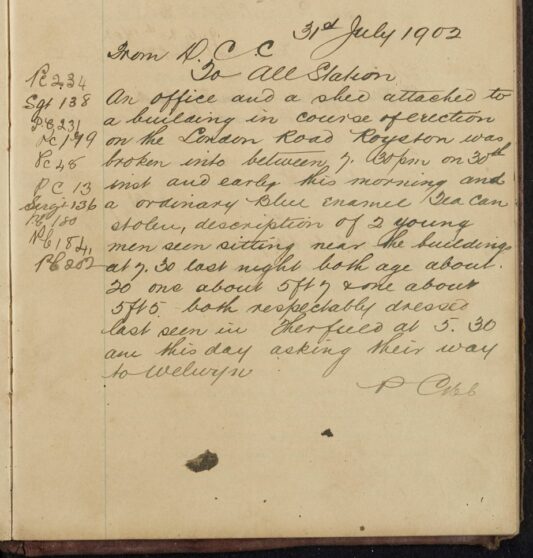 31st July 1902
From D. C. C
To All Station
Pc 234
Sgt 138
PC 231
Pc 179
Pc 48
P C 13
Sergt 136
Pc 180
Pc 184
Pc 202
An office and a shed attached to
a building in course of erection
on the London Road Royston was
broken into between 7. 30pm on 30th
inst and early this morning and
a ordinary Blue Enamel Tea Can
stolen, description of 2 young
men seen sitting near the buildings
at 7.30 last night both age about
20 one about 5ft 7 & one about
5ft5 both respectably dressed
last seen in Therfield at 5. 30
am this day asking their way
to Welwyn